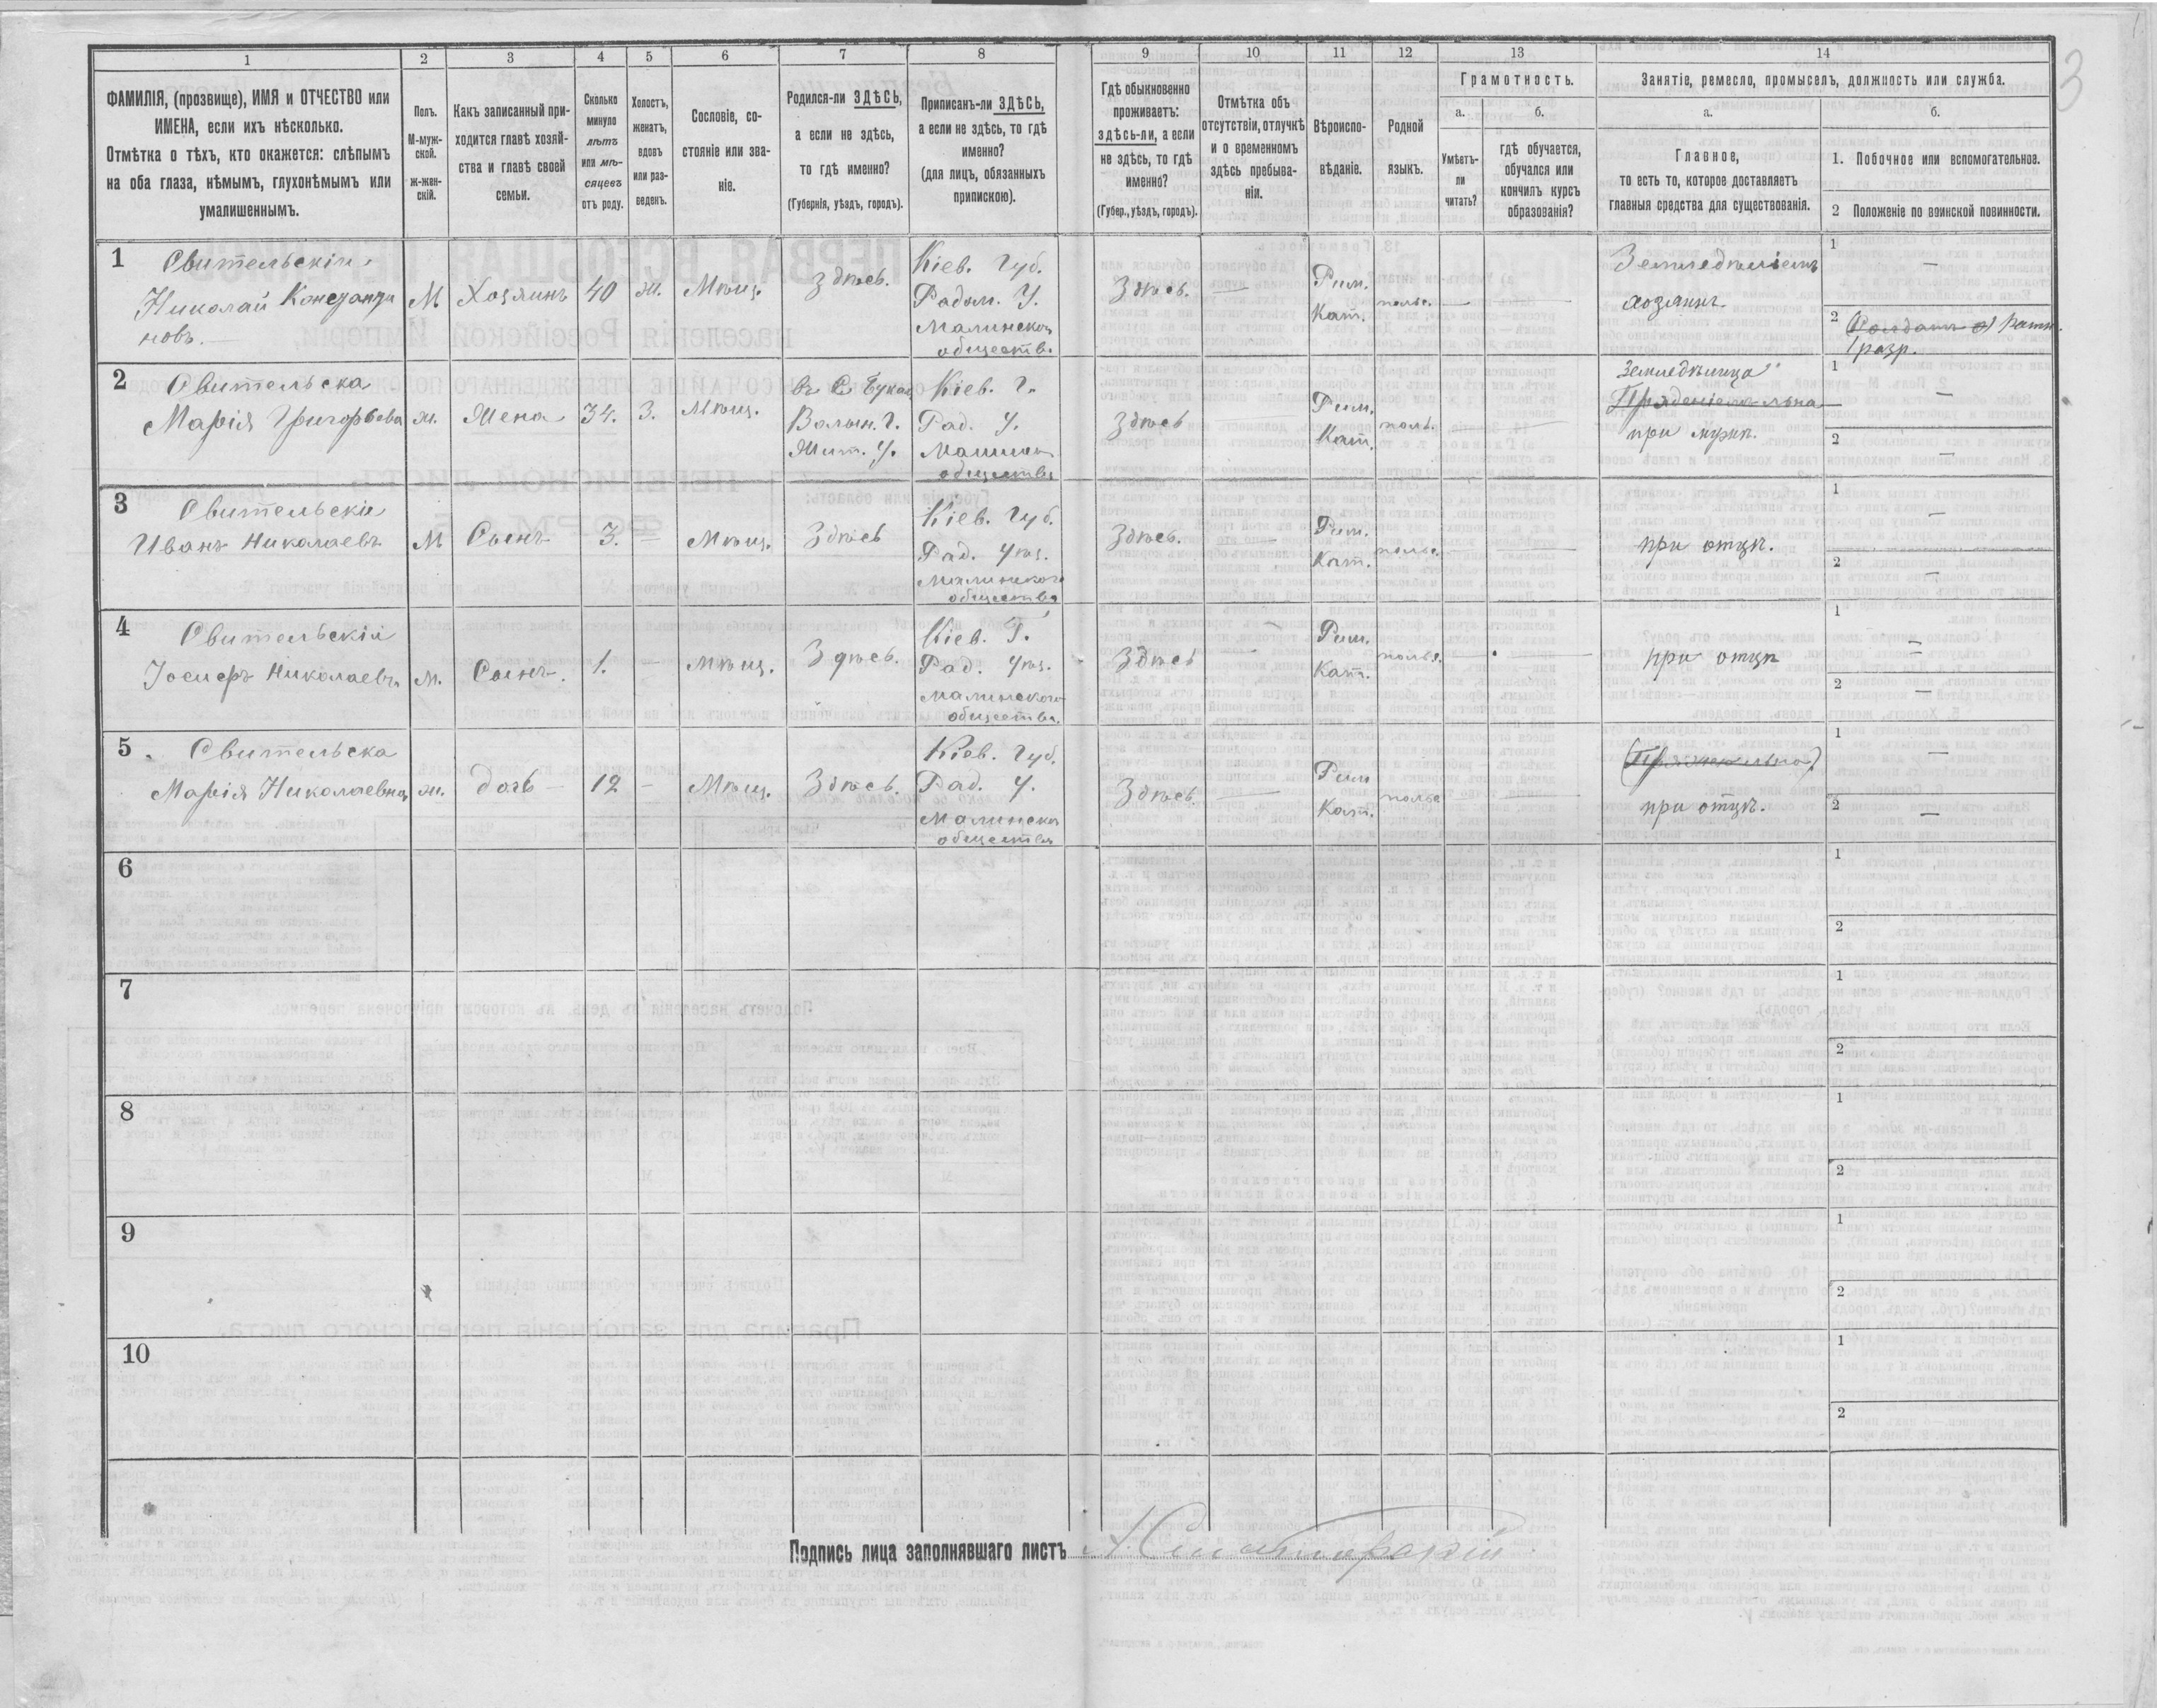 3
1 2 3 4 5 6 7 8 9 10 11 12 13 14
ФАМИЛІЯ, (прозвище), ИМЯ и ОТЧЕСТВО или
ИМЕНА, если ихъ нѣсколько.
Отмѣтка о тѣхъ, кто окажется: слѣпымъ
на оба глаза, нѣмымъ, глухонѣмымъ или
умалишеннымъ.
Полъ.
М-муж-
ской.
ж-жен-
скій.
Какъ записанный при-
ходится главѣ хозяй-
ства и главѣ своей
семьи.
Сколько
минуло
лѣтъ
или мѣ-
сяцевъ
отъ роду.
Холостъ,
женатъ,
вдовъ
или раз-
веденъ.
Сословіе, со-
стояніе или зва-
ніе.
Родился-ли ЗДѢСЬ,
а если не здѣсь,
то гдѣ именно?
(Губернія, уѣздъ, городъ).
Приписанъ-ли ЗДѢСЬ,
а если не здѣсь, то гдѣ
именно?
(для лицъ, обязанныхъ
припискою).
Гдѣ обыкновенно
проживаетъ:
здѣсь-ли, а если
не здѣсь, то гдѣ
именно?
(Губер., уѣздъ, городъ).
Отмѣтка объ
отсутствіи, отлучкѣ
и о временномъ
здѣсь пребыва-
ніи.
Вѣроиспо-
вѣданіе.
Родной
языкъ.
Грамотность.
а.
Умѣетъ-
ли
читать?
б.
гдѣ обучается,
обучался или
кончилъ курсъ
образованія?
Занятіе, ремесло, промыселъ, должность или служба.
а.
Главное,
то есть то, которое доставляетъ
главныя средства для существованія.
б.
1. Побочное или вспомогательное.
2 Положеніе по воинской повинности.
1
Свительскій
Николай Константи
новъ.
М Хозяинъ 40 ж. Мѣщ. Здѣсь.
Кіев. Губ.
Радом. У.
Малинском
общества
Здѣсь. —
Рим.
Кат.
польс. — —
Земледѣліемъ
хозяинъ.
1 —
2 Ратн.
1 разр.
2
Свительска
Марія Григорьева
ж. Жена 34. З. Мѣщ.
Волын. Г.
Жит. У.
Кіев. Г.
Рад. У.
общества
Здѣсь
Рим.
Кат.
поль.
Земледѣлица
при мужѣ.
1 —
2 —
3
Свительскій
Иванъ Николаевъ
М Сынъ 3. — Мѣщ. Здѣсь
Кіев. Губ.
Рад. Уѣз.
Малинского
общества
Здѣсь. —
Рим.
Кат.
польс. — —
при отцѣ.
1 —
2 —
4
Свительскій
Іосифъ Николаевъ
м. Сынъ. 1. — Мѣщ. Здѣсь.
Кіев. Г.
Рад. Уѣз.
Малинского
общества.
Здѣсь —
Рим.
Кат.
польс. — —
при отцѣ
1 —
2 —
5
Свительска
Марія Николаевна
ж. дочь — 12 — Мѣщ. Здѣсь.
Кіев. Губ.
Рад. У.
Малинском
общества
Здѣсь. —
Рим
Кат.
польс — —
при отцѣ.
1 —
2 —
6
1
2
7
1
2
8
1
2
9
1
2
10
1
2
Подпись лица заполнявшаго листъ